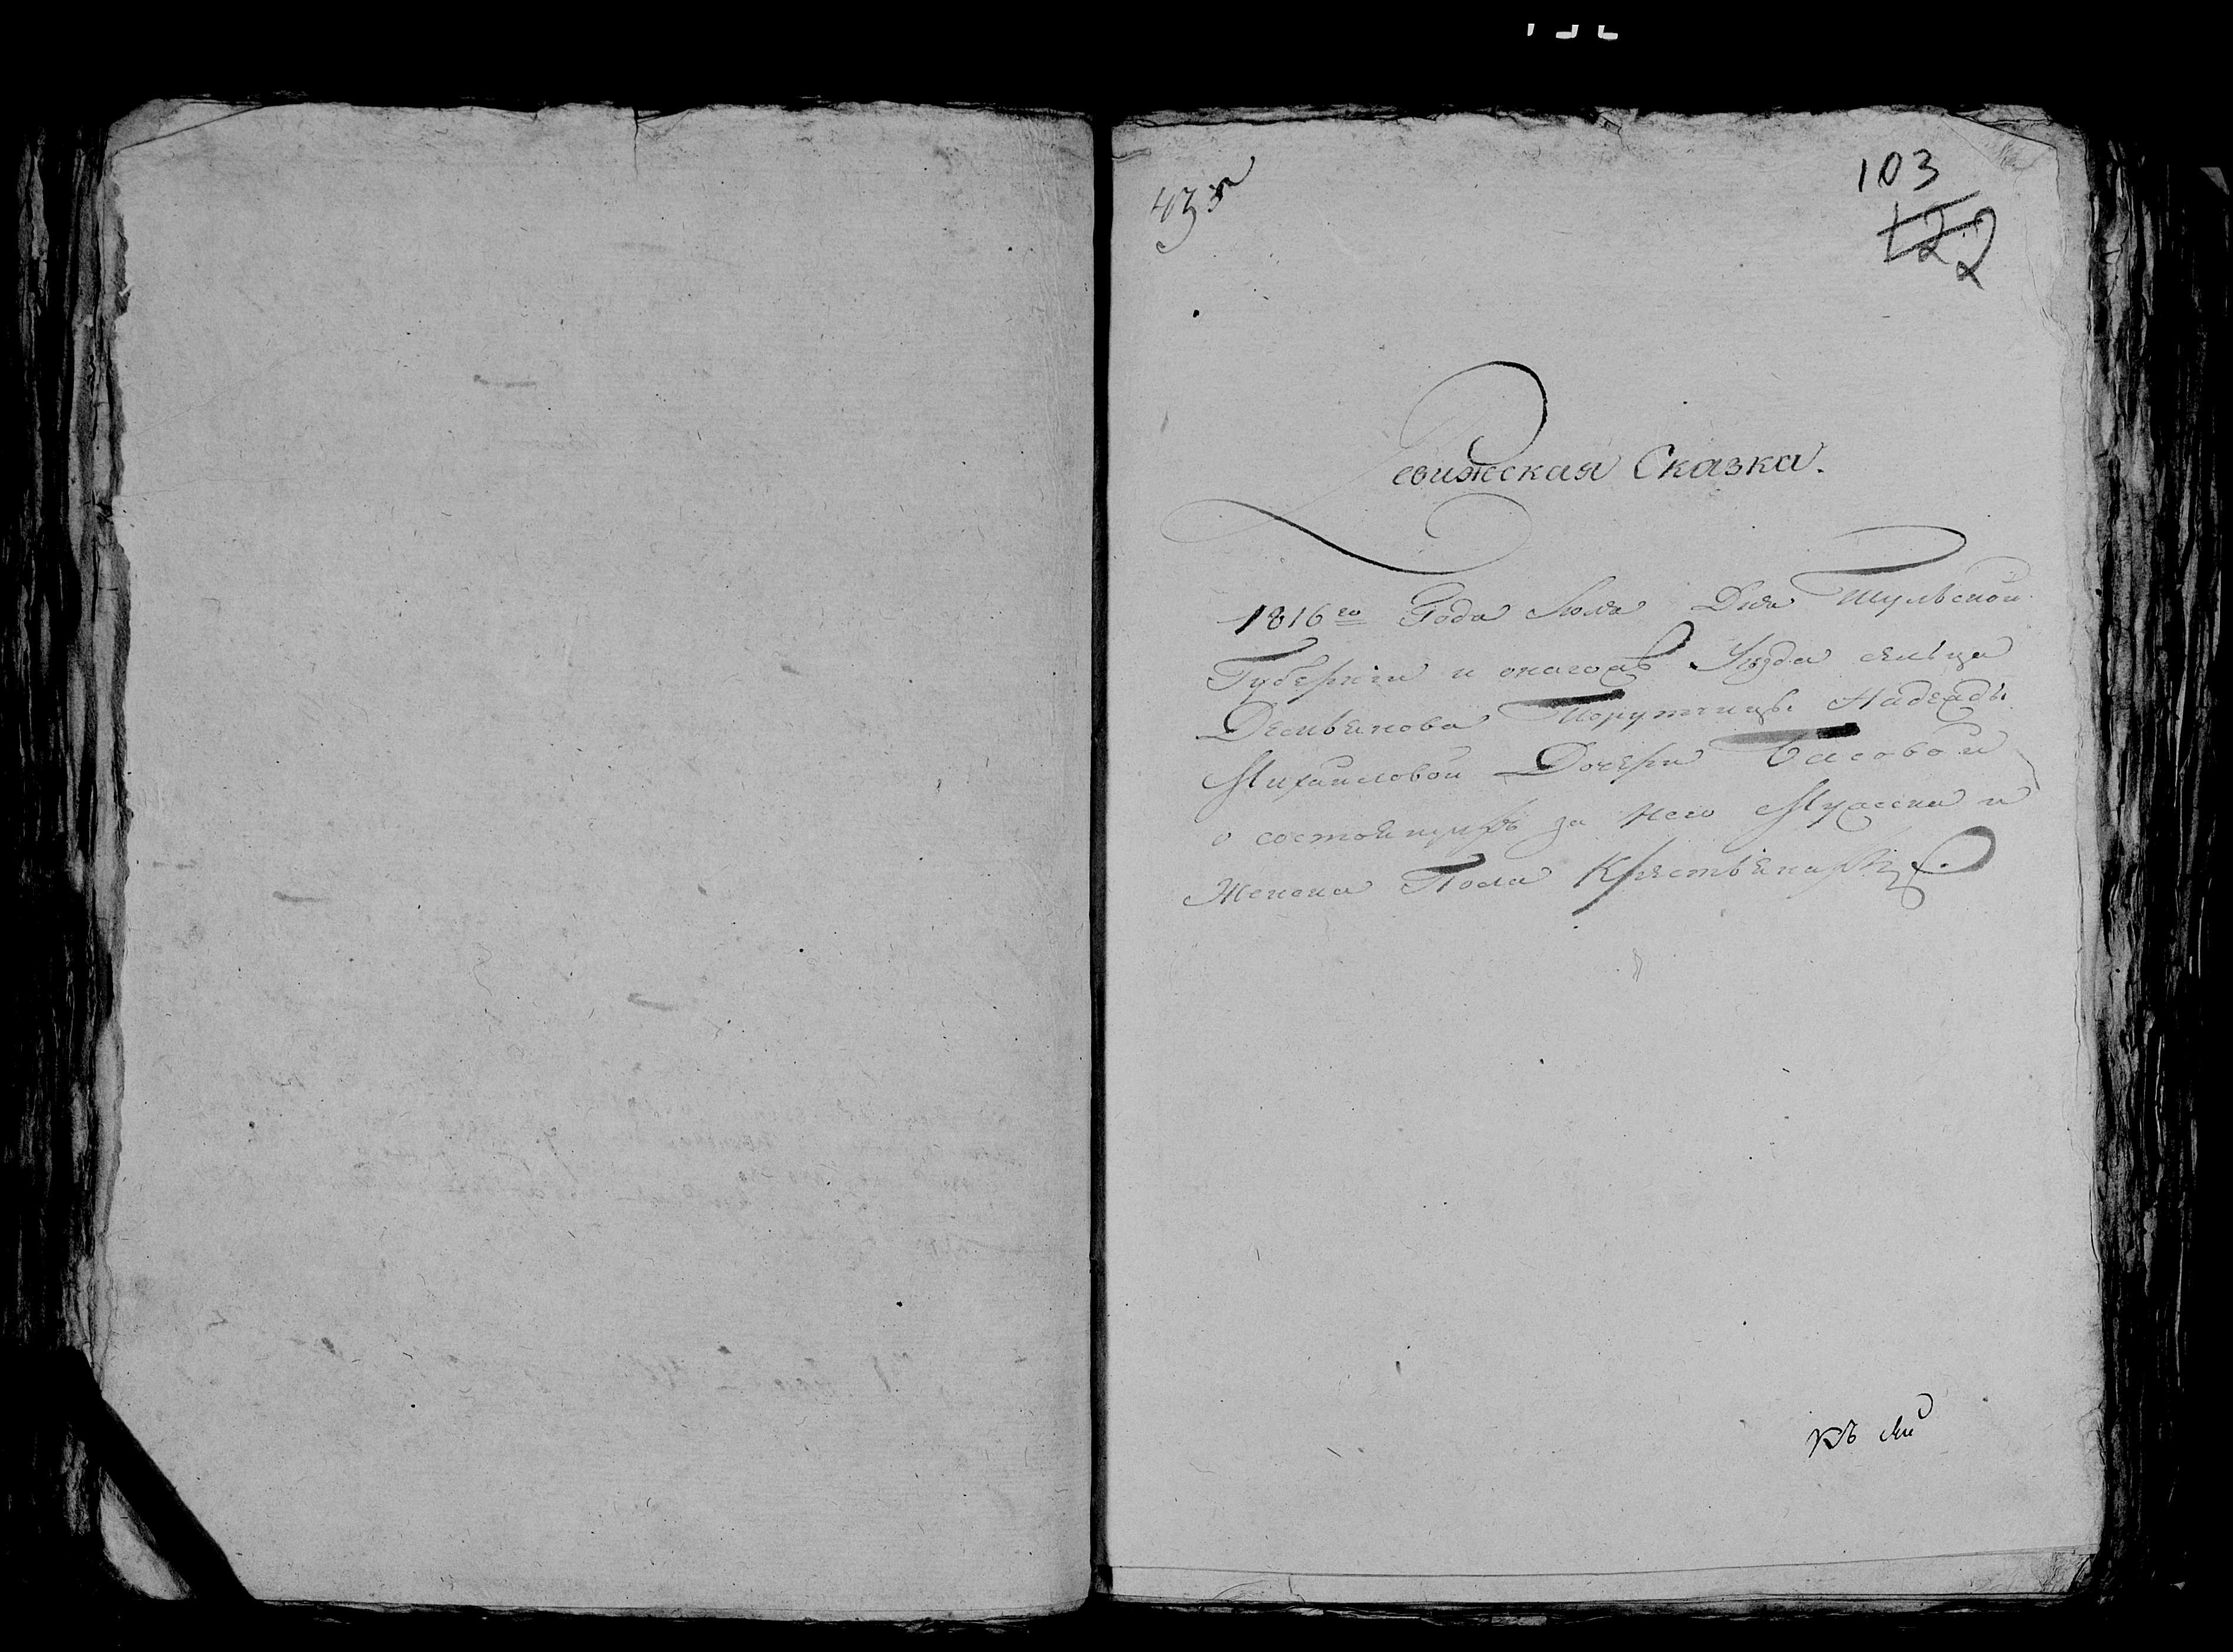 103
122
Ревижская Сказка.
1816го Года Июля Дня Тульской
Губернии и онагожъ Уезда сельца
Порутчицы Надежды
Михаиловой Дочери Басовой
о состоящихъ за Нею Мужска и
Женска Пола Крестьянахъ